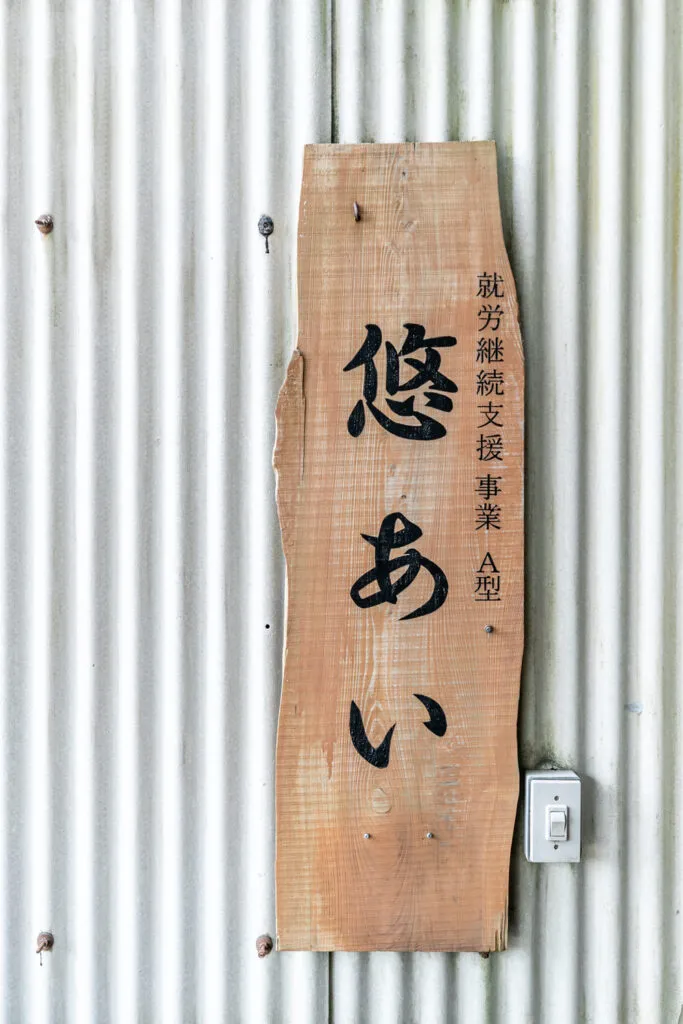 就労継続支援 事業 A型
悠あい